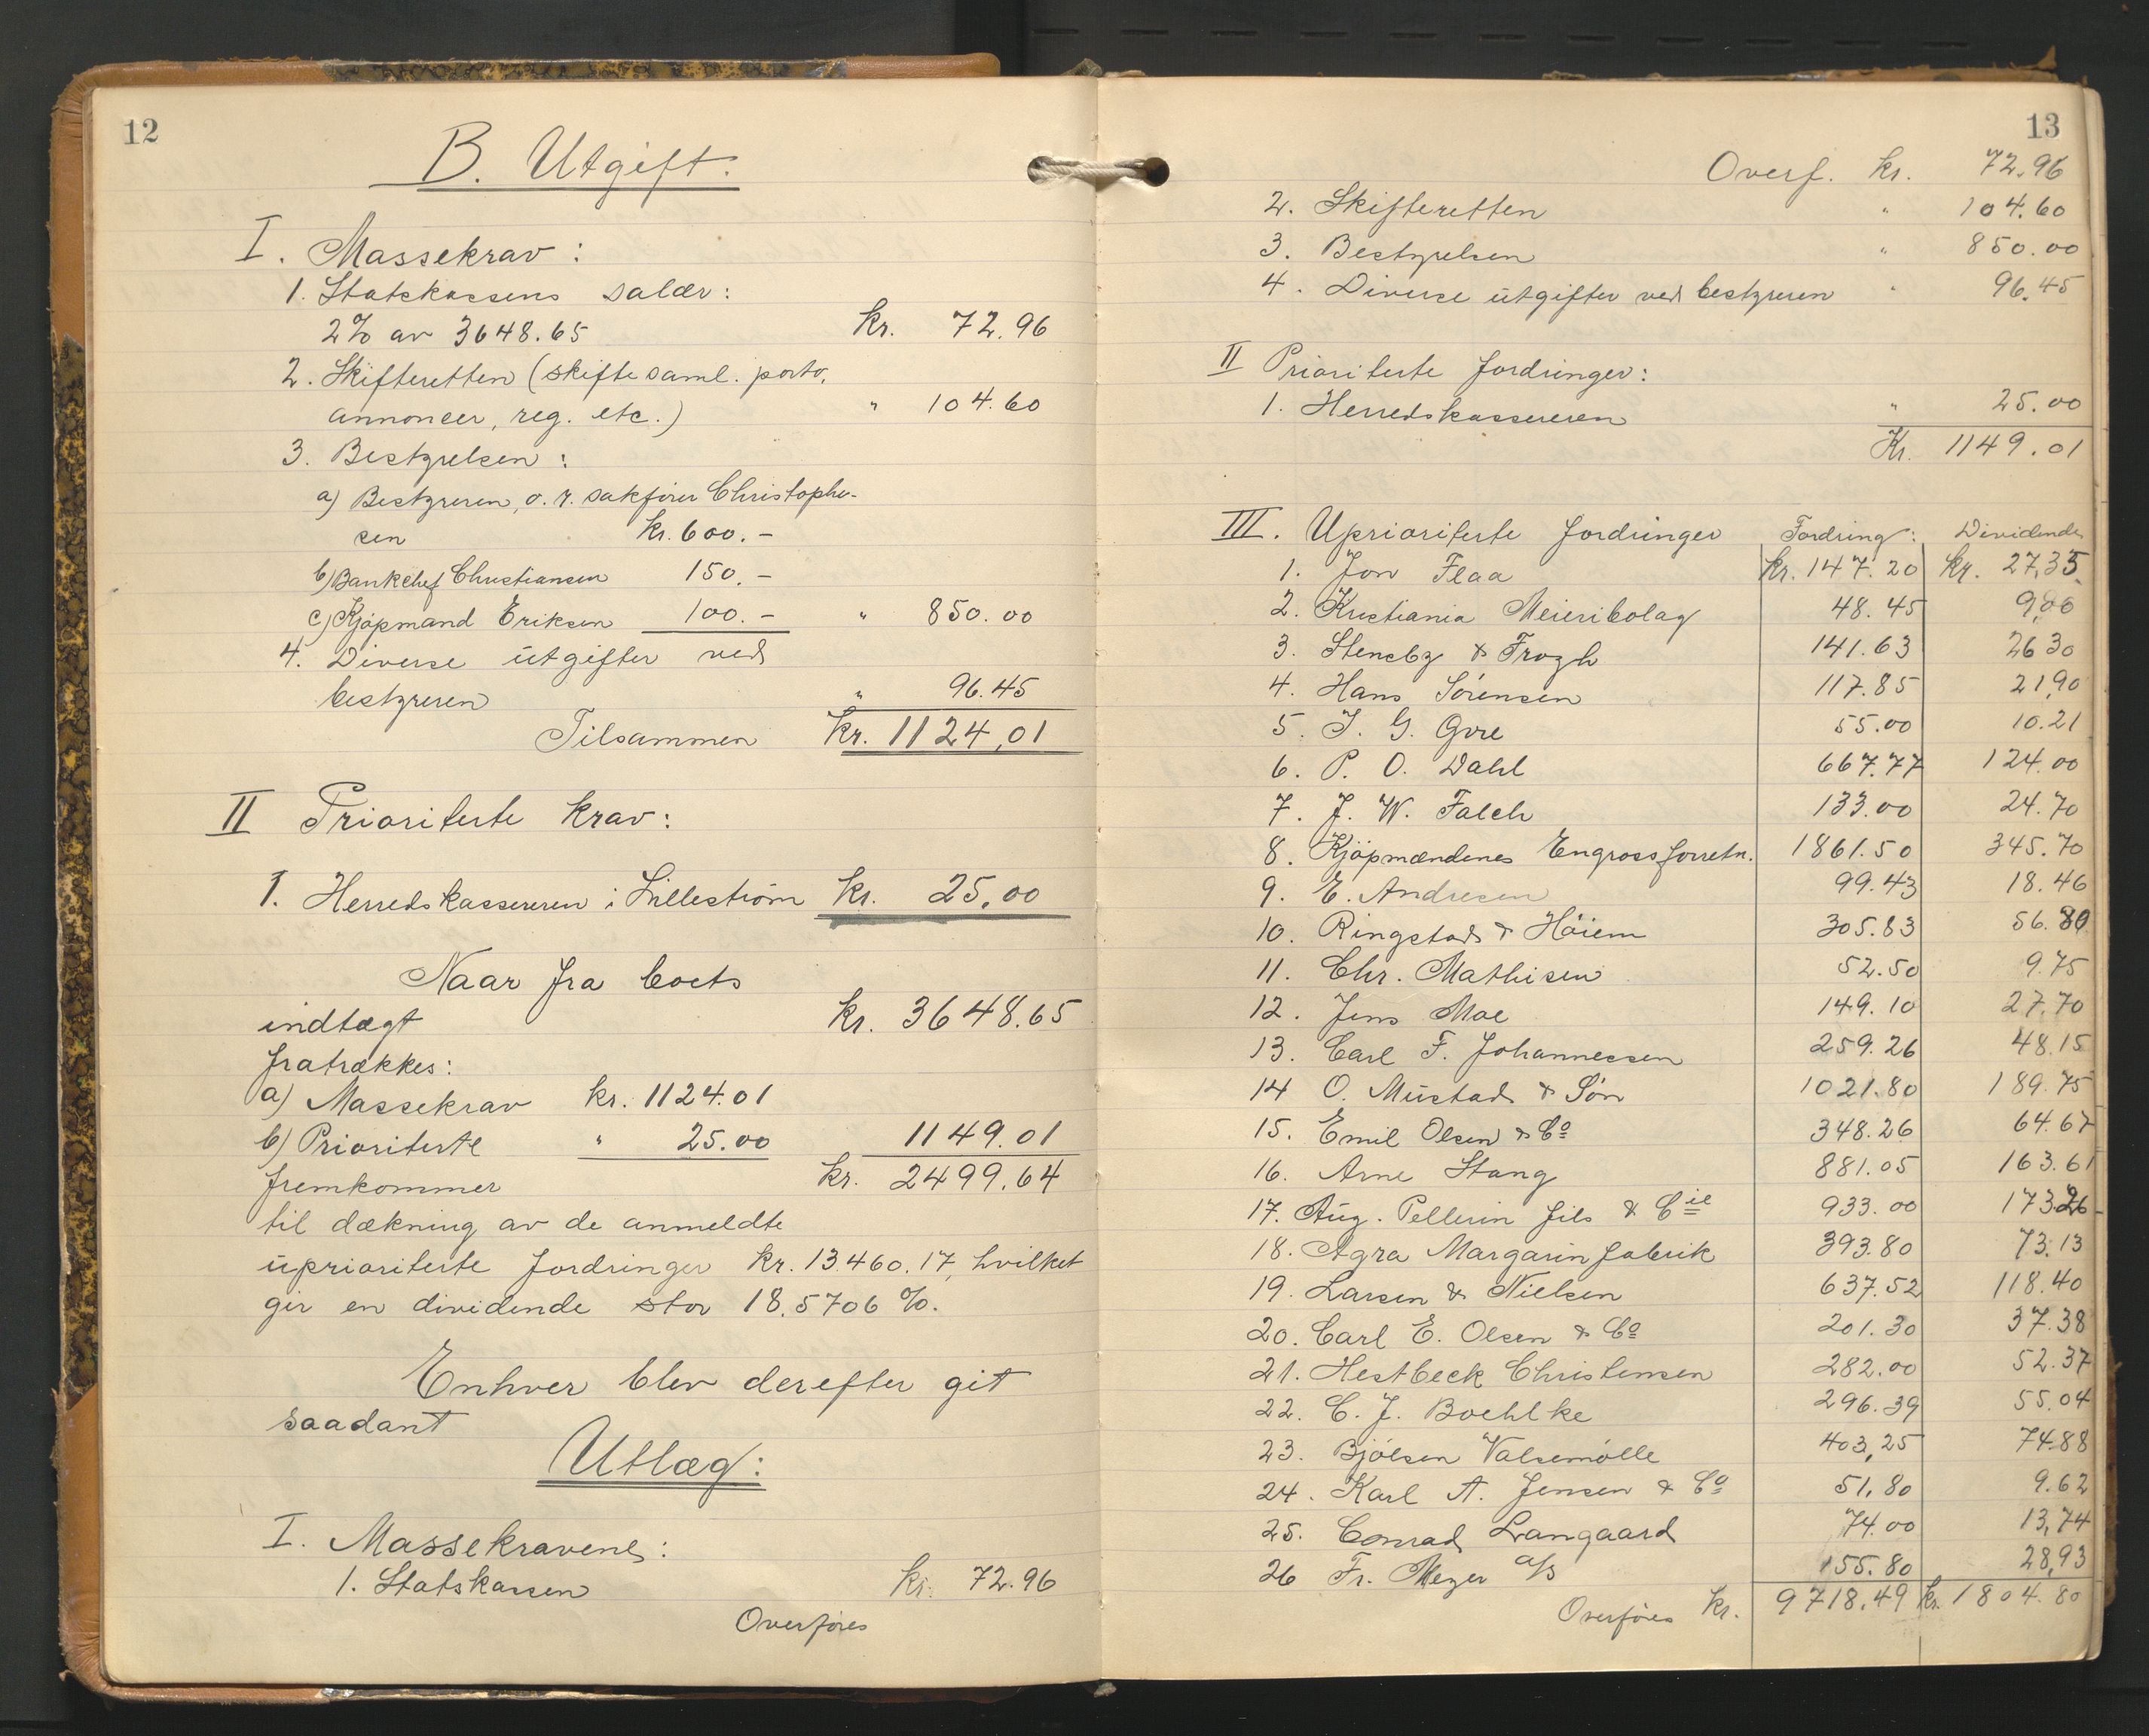 12
B. Utgift.
I. Massekrav:
1. Statskassens salær:
2% av 3648.65 kr. 72.96
2. Skifteretten (skiftesaml. porto,
annoncer, reg. etc.) " 104.60
3. Bestyrelsen:
a) Bestyreren, o.r. sakfører Christopher-
sen kr. 600.-
b) Bankchef Christiansen 150.-
c) Kjøpmand Eriksen 100.- " 850.00
4. Diverse utgifter ved
bestyreren " 96.45
Tilsammen kr. 1124,01
II Prioriterte krav:
1. Herredskassereren i Lillestrøm kr. 25.00
Naar fra boets
indtægt kr. 3648.65
fratrækkes:
a) Massekrav kr. 1124.01
b) Prioriterte " 25.00 1149.01
fremkommer kr. 2499.64
til dækning av de anmeldte
uprioriterte fordringer kr. 13.460.17, hvilket
gir en dividende stor 18,5706 %.
Enhver blev derefter git
saadant
Utlæg:
I. Massekravene:
1. Statskassen kr. 72.96
Overføres
13
Overf. kr. 72.96
2. Skifteretten " 104.60
3. Bestyrelsen " 850.00
4. Diverse utgifter ved bestyreren " 96.45
II Prioriterte fordringer:
1. Herredskassereren " 25.00
Kr. 1149.01
III. Uprioriterte fordringer Fordring: Dividende
1. Jon Flaa kr. 147.20 kr. 27,35
2. Kristiania Meieribolag 48.45 9,00
3. Stensby & Frogh 141.63 26 30
4. Hans Sörensen 117.85 21,90
5. J. G. Gore 55.00 10.21
6. P. O. Dahl 667.77 124.00
7. J. W. Falch 133.00 24.70
8. Kjøpmændenes Engrossforretn. 1861.50 345.70
9. E. Andresen 99.43 18.46
10. Ringstad & Höiem 305.83 56.80
11. Chr. Mathisen 52.50 9.75
12. Jens Moe 149.10 27.70
13. Carl F. Johannessen 259.26 48.15
14 O. Mustad & Sön 1021.80 189.75
15. Emil Olsen & Co 348.26 64.67
16. Arne Stang 881.05 163.61
17. Aug. Pellerin fils & Cie 933.00 173.26
18. Agra Margarinfabrik 393.80 73.13
19. Larsen & Nielsen 637.52 118.40
20. Carl E. Olsen & Co 201.30 37.38
21. Hestbeck Christensen 282.00 52.37
22. C. J. Boehlke 296.39 55.04
23. Bjölsen Valsemölle 403,25 74.88
24. Karl A. Jensen & Co 51.80 9.62
25. Conrad Langaard 74.00 13,74
26 Fr. Meyer a/s 155.80 28,93
Overføres kr. 9718.49 kr. 1804.80